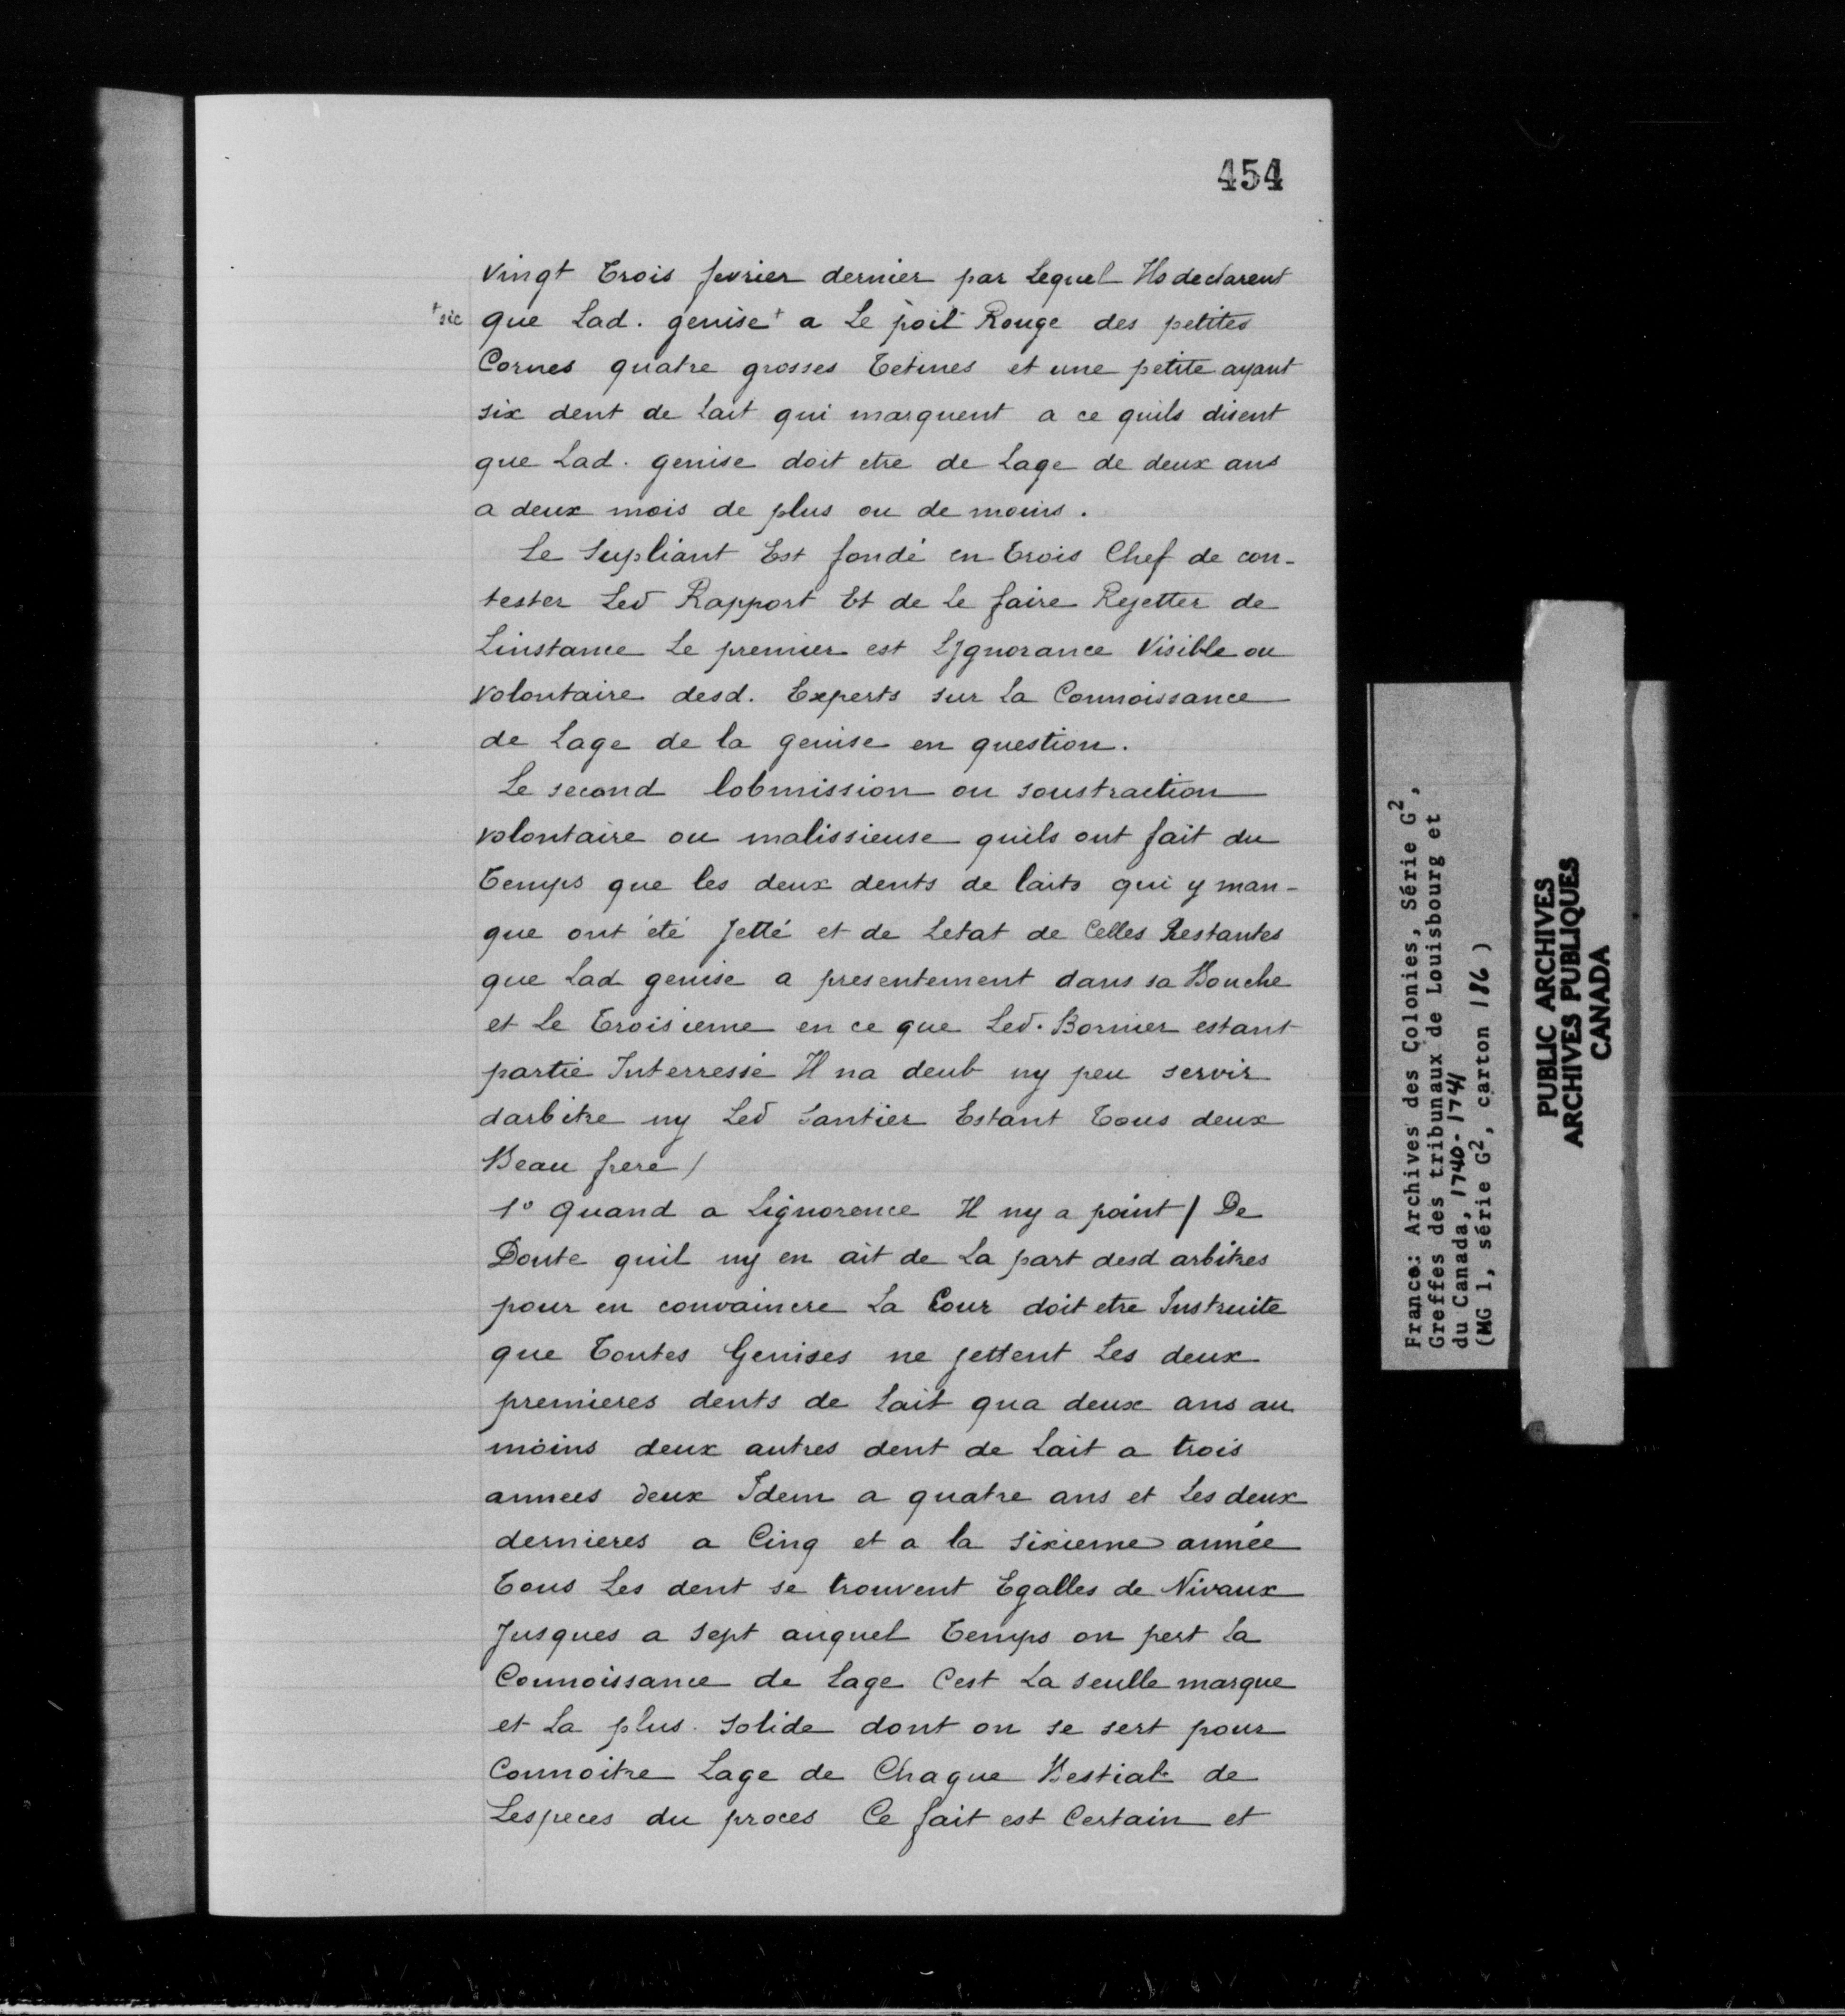 454
vingt Trois fevrier dernier par Lequel Ils declarent
+sic que Lad. genise+ a Le poil Rouge des petites
Cornes quatre grosses Tetines et une petite ayant
six dent de Lait qui marquent a ce quils disent
que Lad. genise doit etre de Lage de deux ans
a deux mois de plus ou de moins.
Le Supliant Est fondé en Trois Chef de con-
tester Led Rapport Et de Le faire Rejetter de
Linstance Le premier est LJgnorance Visible ou
volontaire desd. Experts sur La Connoissance
de Lage de la genise en question.
Le second lobmission ou soustraction
volontaire ou malissieuse quils ont fait du
Temps que les deux dents de laits qui y man-
que ont été Jetté et de Letat de Celles Restantes
que Lad genise a presentement dans sa Bouche
et Le Troisieme en ce que Led. Bornier estant
partie Interressé Il na deub ny peu servir
darbitre ny Led Santier Estant Tous deux
Beau frere /
1° Quand a Lignorence Il ny a point / De
Doute quil ny en ait de La part desd arbitres
pour en convaincre La Cour doit etre Instruite
que Toutes Genises ne jettent Les deux
premieres dents de Lait qua deux ans au
moins deux autres dent de Lait a trois
annees deux Idem a quatre ans et Les deux
dernieres a Cinq et a la sixieme année
Tous Les dent se trouvent Egalles de Nivaux
Jusques a sept auquel Temps on pert La
Connoissance de Lage C'est La seulle marque
et La plus solide dont on se sert pour
Connoitre Lage de Chaque Bestial de
Lespeces du proces Ce fait est Certain et
France: Archives des Colonies, Série G²,
Greffes des tribunaux de Louisbourg et
du Canada, 1740-1741
(MG 1, série G², carton 186)
PUBLIC ARCHIVES
ARCHIVES PUBLIQUES
CANADA